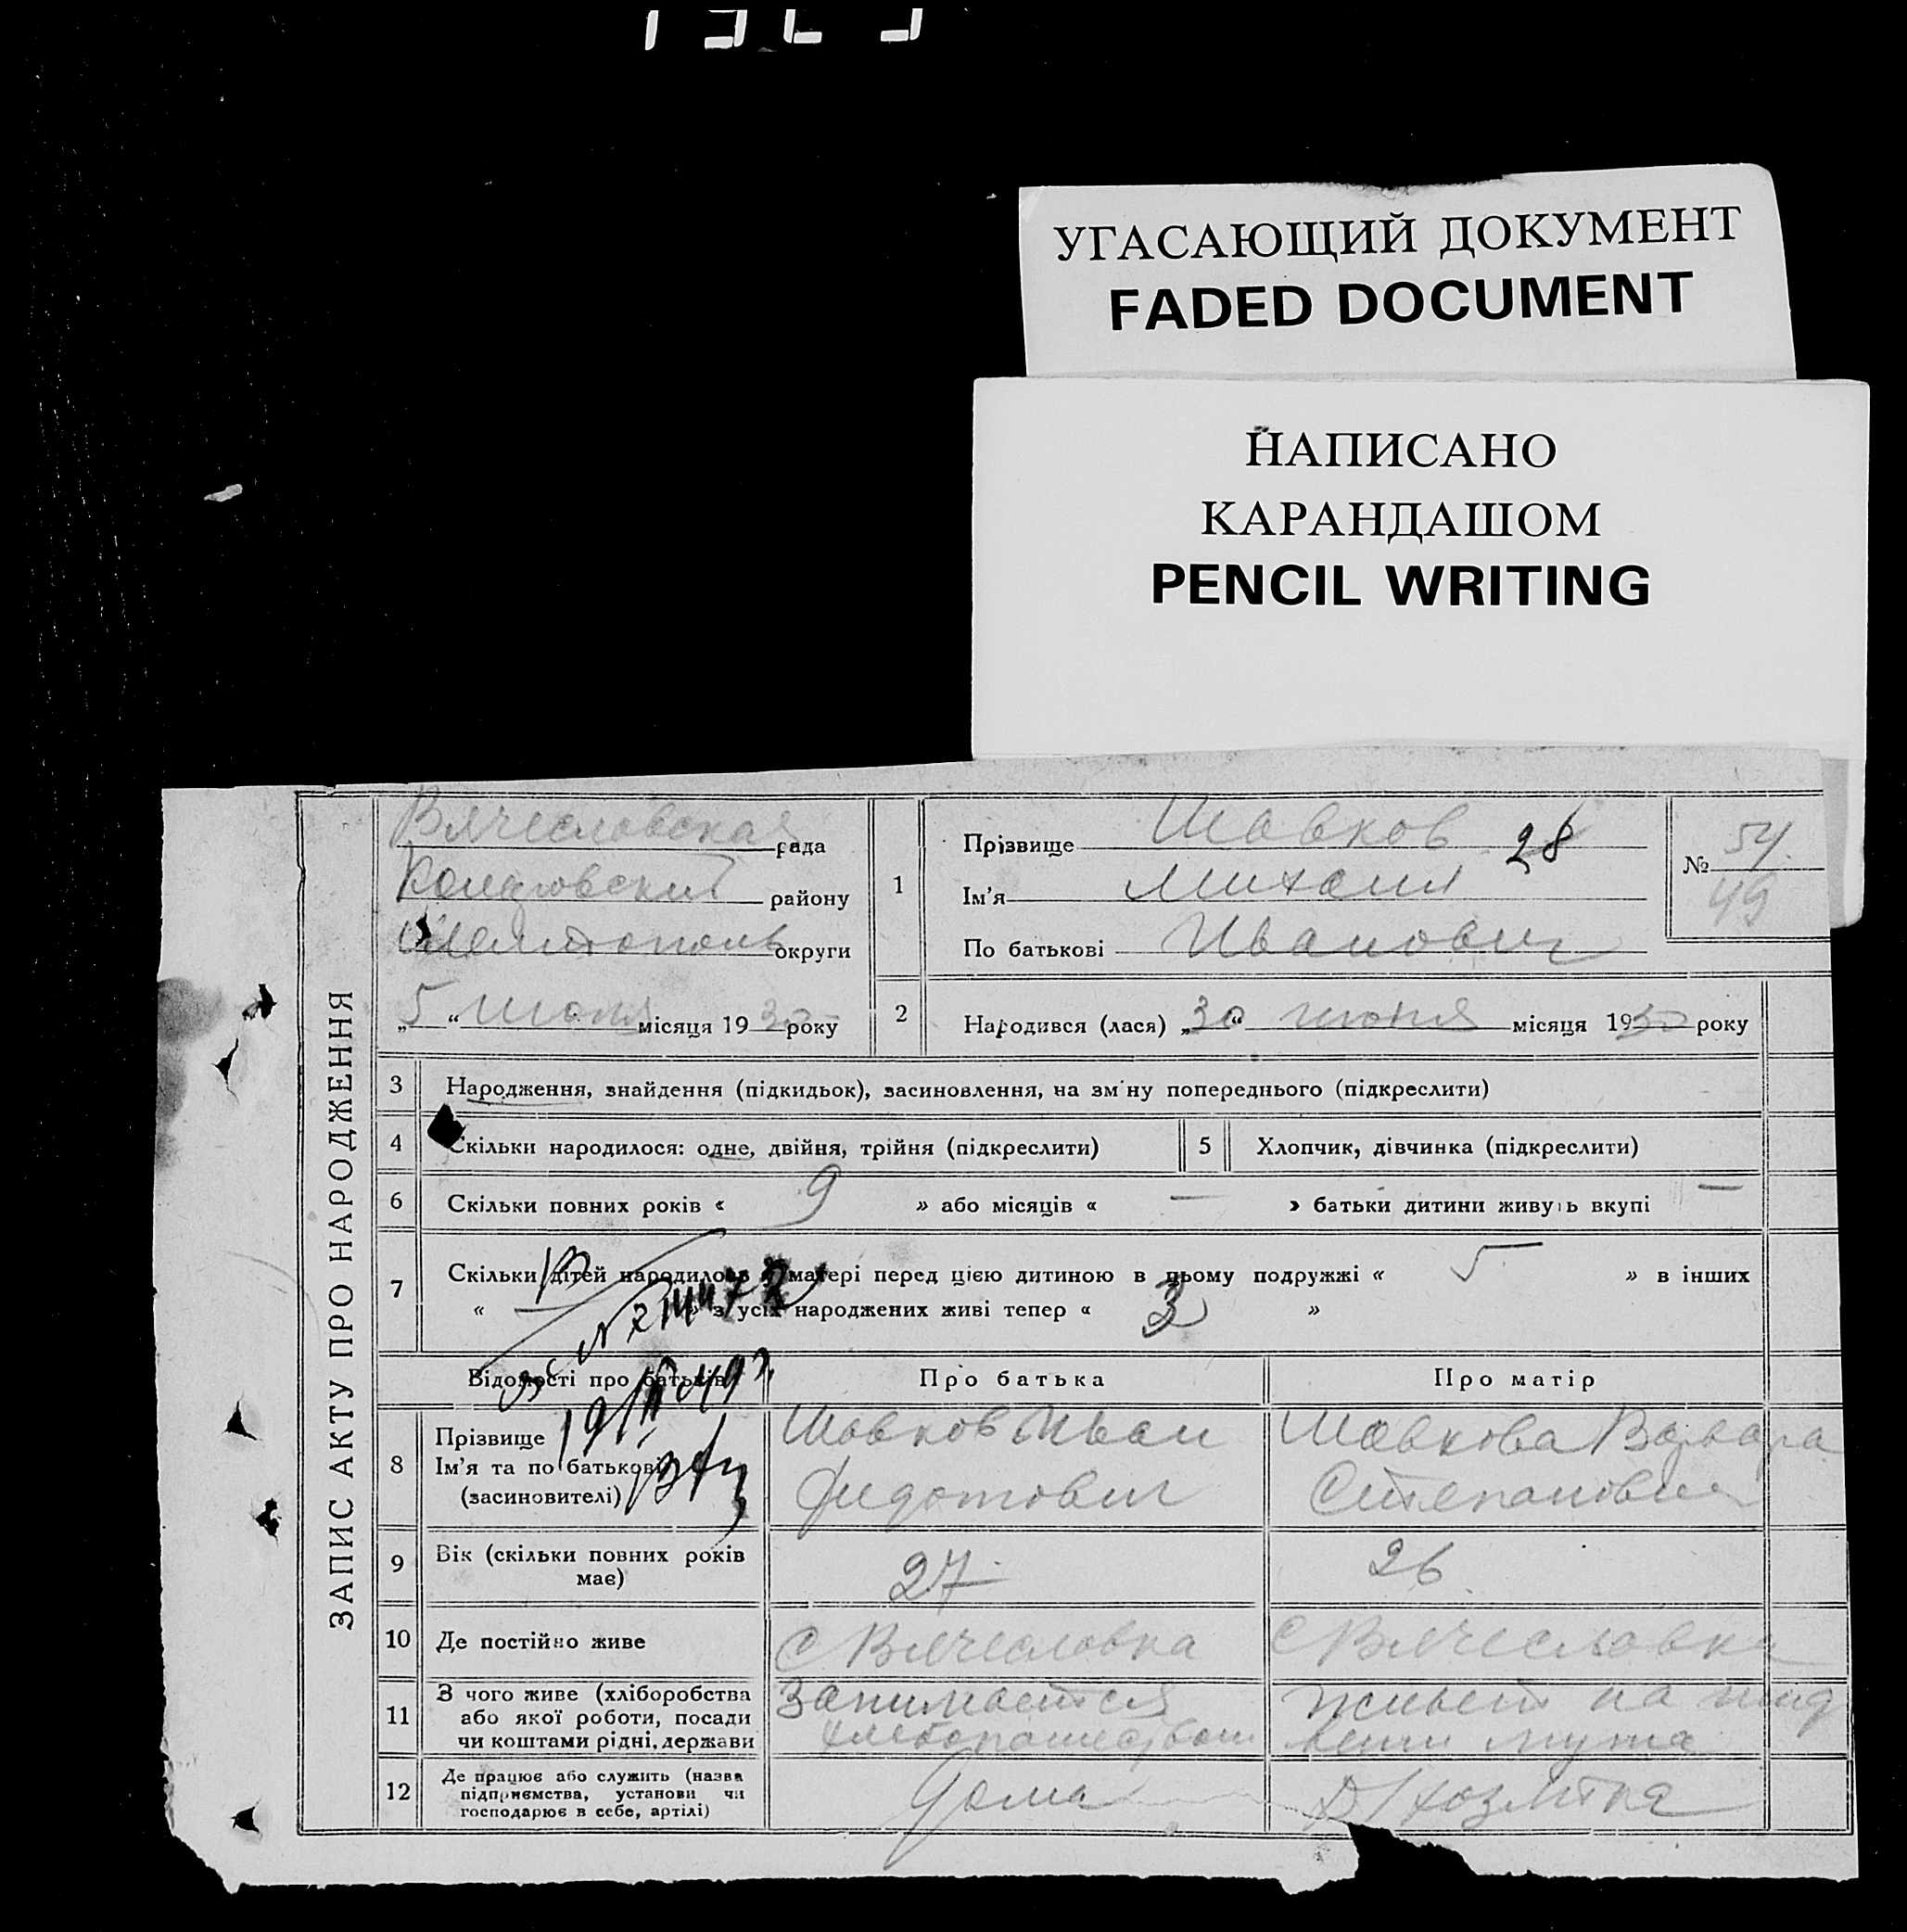 УГАСАЮЩИЙ ДОКУМЕНТ
FADED DOCUMENT
НАПИСАНО
КАРАНДАШОМ
PENCIL WRITING
ЗАПИС АКТУ ПРО НАРОДЖЕННЯ
Вячесловская рада
району
Мелитополь округи
„5“ июля місяця 1930 року
1 Прізвище Шовков 28
Ім'я Михаил
По батькові Иванович
№ 54
49
2 Народився (лася) „30“ июня місяця 1930 року
3 Народження, знайдення (підкидьок), засиновлення, на зм'ну попереднього (підкреслити)
4 Скільки народилося: одне, двійня, трійня (підкреслити) 5 Хлопчик, дівчинка (підкреслити)
6 Скільки повних років « 9 » або місяців « — » батьки дитини живуть вкупі —
7 Скільки дітей народилось у матері перед цією дитиною в цьому подружжі « 5 » в інших
« — » з усіх народжених живі тепер « 3 »
Відомості про батьків Про батька Про матір
8 Прізвище
Ім'я та по батькові
(засиновителі)
Шовков Иван
Федотович
Шовкова Варвара
Степановна
9 Вік (скільки повних років
має)
27
26
10 Де постійно живе С Вячесловка С Вячесловка
11 З чого живе (хліборобства
або якої роботи, посади
чи коштами рідні, держави
Занимается
хлебопашеством
живет на ижд
вении мужа
12 Де працює або служить (назва
підприємства, установи чи
господарює в себе, артілі)
Дома
Д/хозяйка